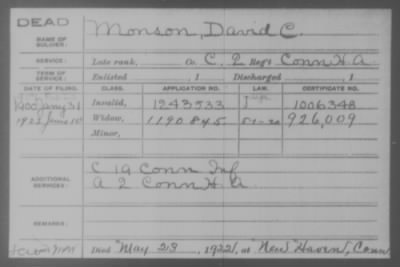 DEAD
NAME OF SOLDIER: Monson, David C.
SERVICE: Late rank, Co. C. 2 Reg't Conn H A
TERM OF SERVICE: Enlisted , 1 Discharged , 1
DATE OF FILING. CLASS. APPLICATION NO. LAW. CERTIFICATE NO.
1900 Jany 31 Invalid, 1243533 1006348
1922 June 10 Widow, 1190845 926,009
Minor,
ADDITIONAL SERVICES:
C 19 Conn Inf
A 2 Conn H. A.
REMARKS:
Died May 23, 1922, at New Haven, Conn